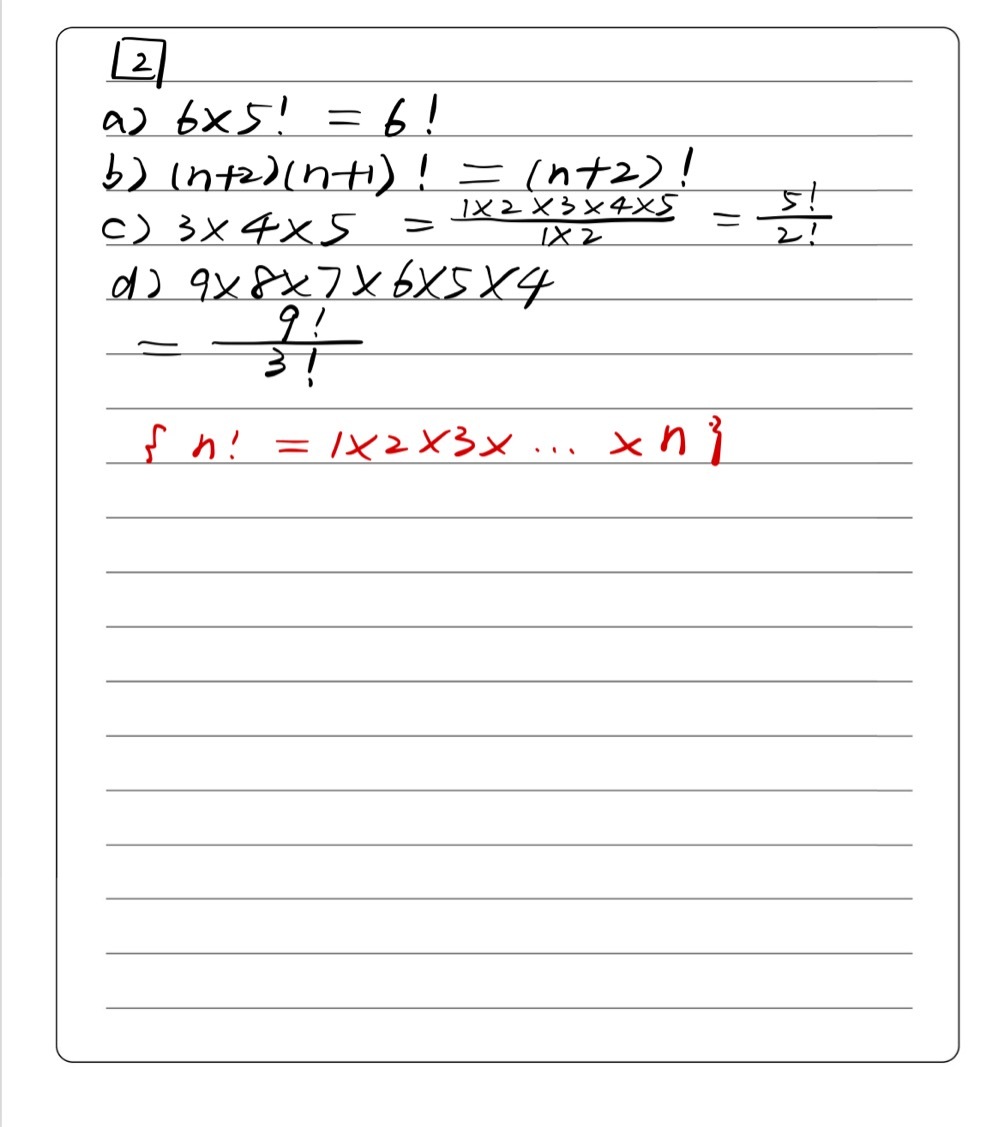 2
a) 6×5! = 6!
b) (n+2)(n+1)! = (n+2)!
c) 3×4×5 = 1×2×3×4×5/1×2 = 5!/2!
d) 9×8×7×6×5×4
= 9!/3!
{ n! = 1×2×3×...×n }